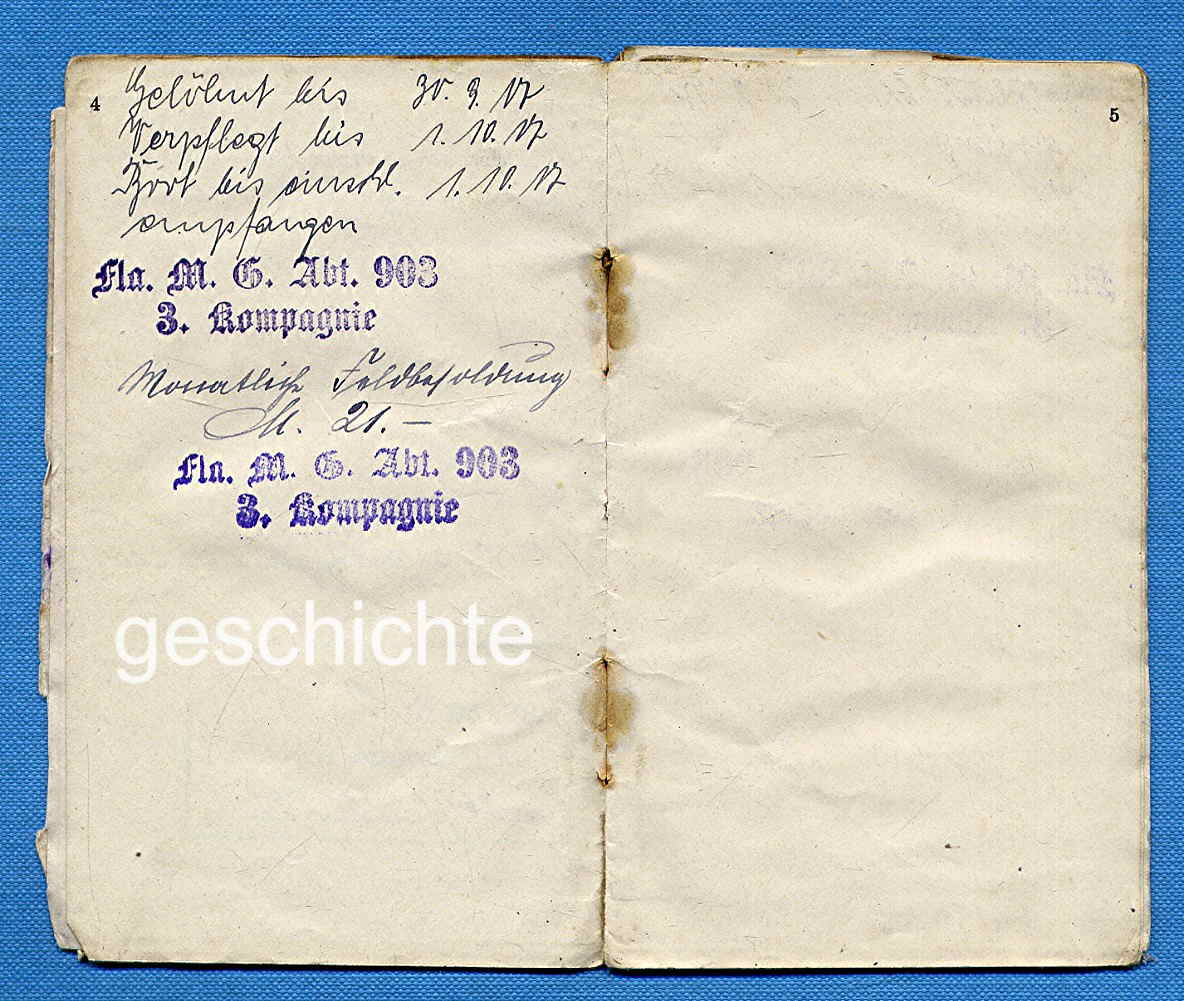 4
Gelöhnt bis 30. 9. 17
Verpflegt bis 1. 10. 17
Brot bis einschl. 1. 10. 17
empfangen
Fla. M. G. Abt. 903
3. Kompagnie
Monatliche Feldbesoldung
M. 21.–
Fla. M. G. Abt. 903
3. Kompagnie
geschichte
5